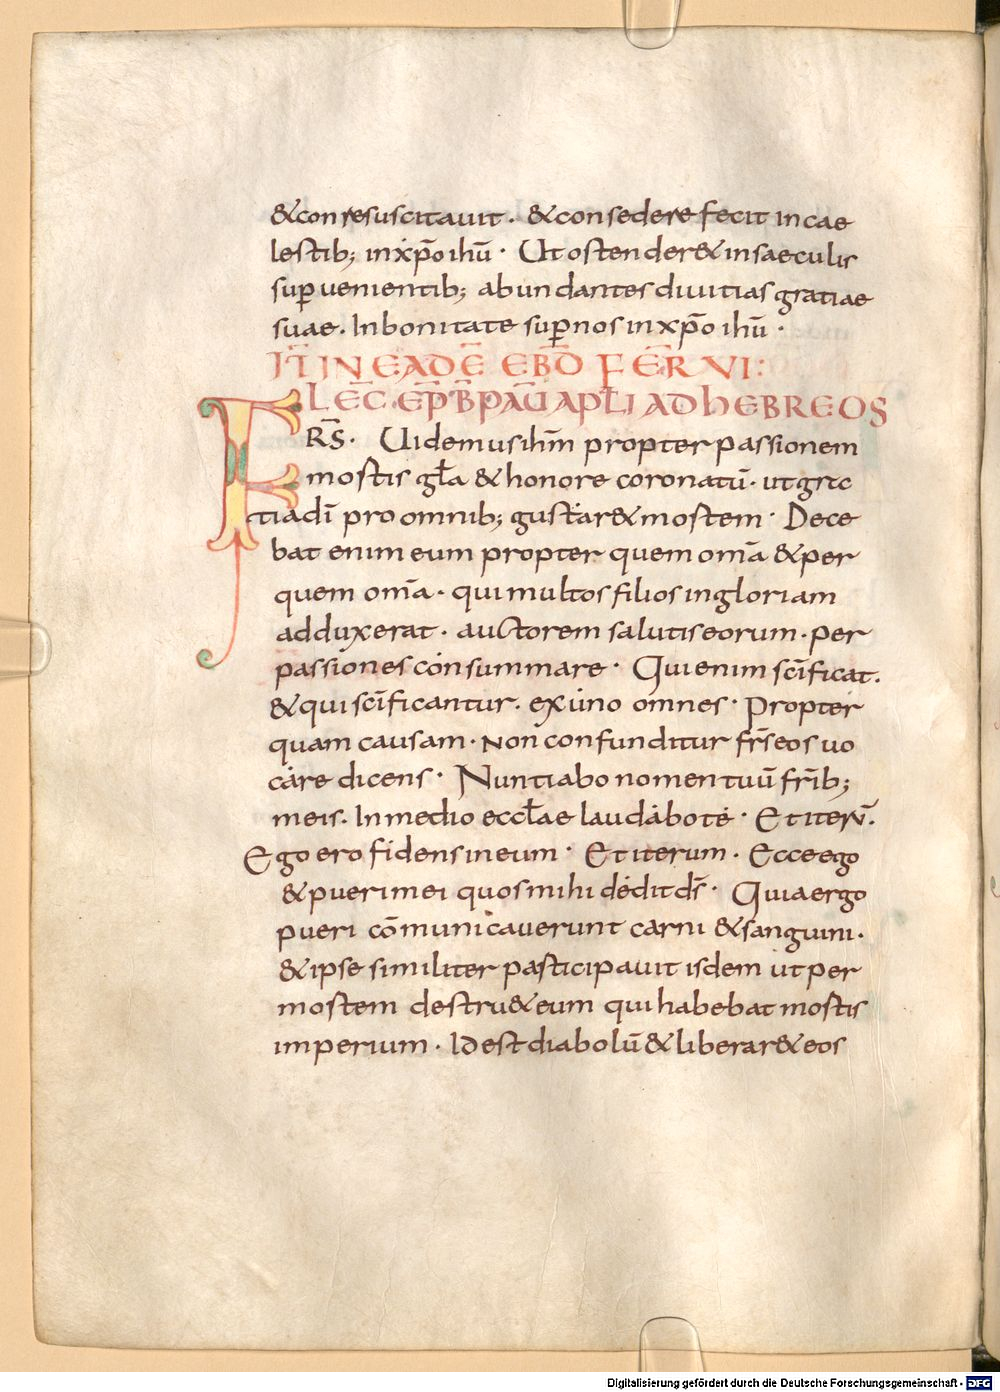 &conresuscitauit · &consedere fecit incae
lestib; inxp̄o ihū · Ut ostender& insaeculis
sup̲uenientib; abundantes diuitias gratiae
suae. Inbonitate sup̲nos inxp̄o ihū ·
IT̄ IN EADĒ EBD̄ FĒR VI:
LEC̄. EP̄ B̄ PAŪ APL̄I AD HEBREOS
FRS̄ · Uidemus ihm̄ propter passionem
mortis gl̄a & honore coronatū · ut gra
tia dī pro omnib; gustar& mortem · Dece
bat enim eum propter quem om̄a & per
quem om̄a · qui multos filios in gloriam
adduxerat · auctorem salutis eorum · per
passiones consummare · Qui enim sc̄ificat.
& qui sc̄ificantur. ex uno omnes · Propter
quam causam · Non confunditur fr̄s eos uo
care dicens · Nuntiabo nomen tuū fr̄ib;
meis. In medio eccl̄ae laudabo te · Et iter̄.
Ego ero fidens in eum · Et iterum . Ecce ego
& pueri mei quos mihi dedit ds̄ · Quia ergo
pueri cōmunicauerunt carni & sanguini.
& ipse similiter participauit isdem ut per
mortem destru& eum qui habebat mortis
imperium . Id est diabolū & liberar& eos
Digitalisierung gefördert durch die Deutsche Forschungsgemeinschaft - DFG